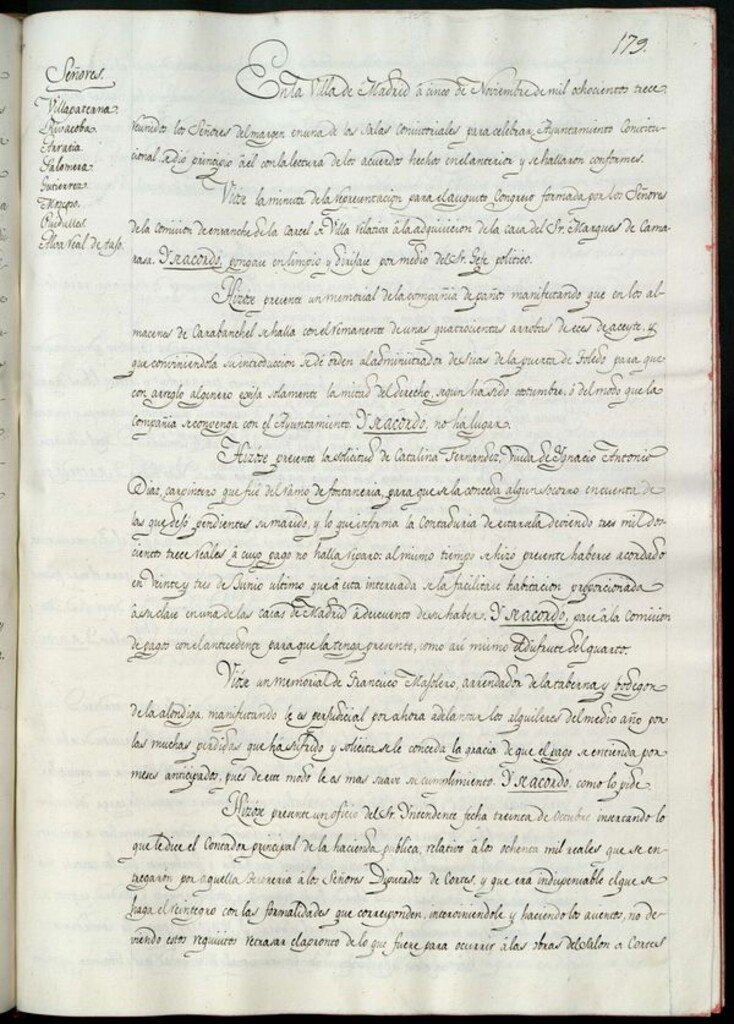 179.
Señores.
Villapaterna.
Rivacoba.
Arratia.
Salomera.
Gutierrez.
Monpo.
Quedulles.
Mora Real de taso.
En la Villa de Madrid á cinco de Noviembre de mil ochocientos trece
reunidos los Señores del margen en una de las Salas Consistoriales para celebrar Ayuntamiento Constitu-
cional se dió principio á él con la lectura de los acuerdos hechos en el anterior y se hallaron conformes.
Vióse la minuta de la representacion para el augusto Congreso formada por los Señores
de la Comision de ensanche de la Carcel de Villa relativa á la adquisicion de la casa del Sr. Marques de Cama-
rasa. Y se acordó, pongase en limpio y dirijase por medio del Sr. Gefe politico.
Hízose presente un memorial de la compañia de paños manifestando que en los al-
macenes de Carabanchel se halla con el remanente de unas quatrocientas arrobas de eces de aceyte, y
que conviniendola su introduccion se dé orden al administrador de sisas de la puerta de Toledo para que
con arreglo al genero exija solamente la mitad del derecho, segun ha sido costumbre, ó del modo que la
compañia se convenga con el Ayuntamiento. Y se acordó, no ha lugar.
Hízose presente la solicitud de Catalina Fernandez, Viuda de Ignacio Antonio
Diaz, carpintero que fue del ramo de fontaneria, para que se la conceda algun socorro en cuenta de
las que dejó pendientes su marido, y lo que informa la Contaduria de estarsela deviendo tres mil dos-
cientos trece reales á cuyo pago no halla reparo: al mismo tiempo se hizo presente haberse acordado
en veinte y tres de Junio ultimo que á esta interesada se la facilitase habitacion proporcionada
á su clase en una de las casas de Madrid á descuento de su haber. Y se acordó, pase á la Comision
de pagos con el antecedente para que la tenga presente, como asi mismo el disfrute del quarto.
Vióse un memorial de Francisco Masolero, arrendador de la taberna y bodegon
de la alondiga, manifestando le es perjudicial por ahora adelantar los alquileres del medio año por
las muchas perdidas que ha sufrido y solicita se le conceda la gracia de que el pago se entienda por
meses anticipados, pues de este modo le es mas suave su cumplimiento. Y se acordó, como lo pide.
Hízose presente un oficio del Sr. Yntendente fecha treinta de Octubre insertando lo
que le dice el Contador principal de la hacienda publica, relativo á los ochenta mil reales que se en-
tregaron por aquella Tesoreria á los Señores Diputados de Cortes, y que era indispensable el que se
haga el reintegro con las formalidades que corresponden, interviniendole y haciendo los asientos, no de-
viendo estos requisitos retrasar el apronto de lo que fuere para ocurrir á las obras del Salon de Cortes